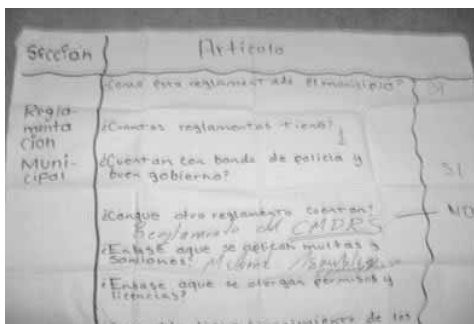 Sección Artículo
¿Como esta reglamentado el municipio? SI
Regla-
menta
ción
Muni-
cipal
¿Cuantos reglamentos tiene? 1
¿Cuentan con bando de policia y
buen gobierno? SI
¿Conque otro reglamento cuentan? NO
Reglamento del CMDRS
¿Enbase aque se aplican multas y
sanciones?
¿Enbase aque se otorgan permisos y
licencias?
de los